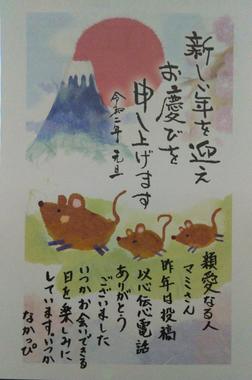 新しい年を迎え
お慶びを
申し上げます
令和二年 元旦
類愛なる人
マミさん
昨年日投稿
以心伝心電話
ありがとう
ございました
いつかお会いできる
日を楽しみに
しています。いつか
なかっぴ